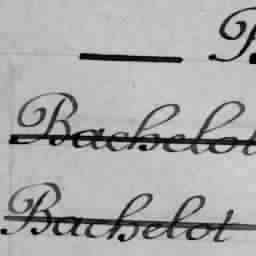 B
Bachelot
Bachelot